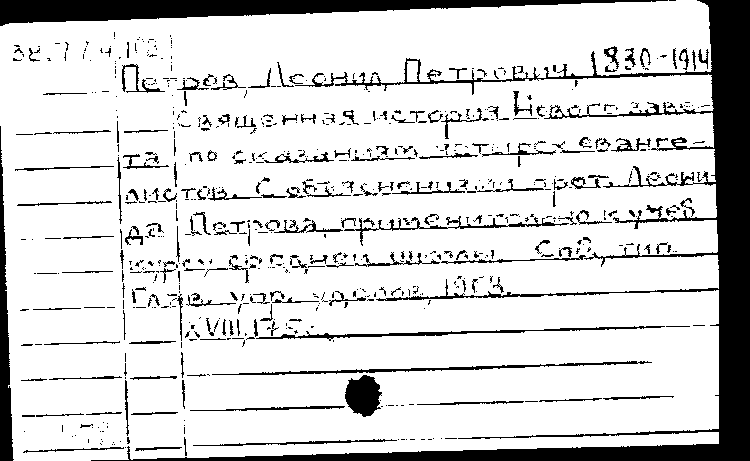 Петров, Леонид Петрович, 1830-1914
Священная история Нового заве-
та по сказаниям четырех еванге-
листов. С объяснениями прот. Леони-
да Петрова, применительно к учеб.
курсу средней школы. Спб., тип.
Глав. упр. уделов,
XVIII, 175 с.